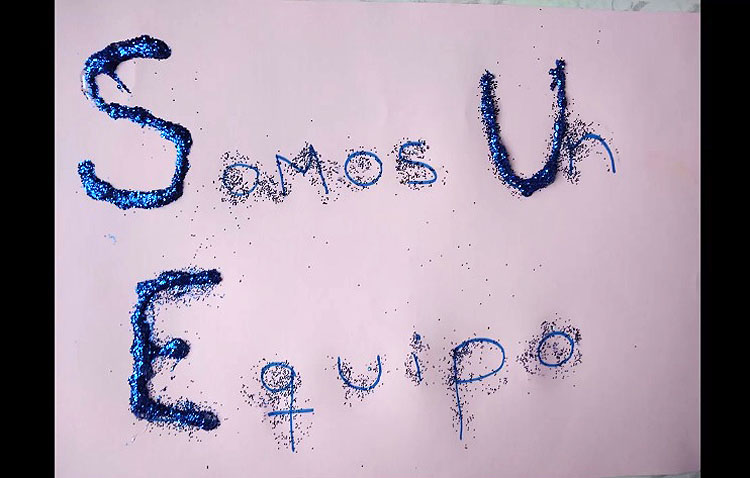 Somos Un
Equipo